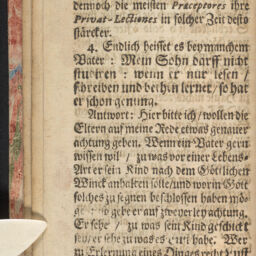 dennoch die meisten Præceptores ihre
Privat-Lectiones in solcher Zeit desto
stärcker.
4. Endlich heisset es bey manchem
Vater: Mein Sohn darff nicht
studiren: wenn er nur lesen /
schreiben und bethen lernet / so hat
er schon genung.
Antwort: Hier bitte ich / wollen die
Eltern auf meine Rede etwas genauer
achtung geben. Wenn ein Vater gern
wissen will / zu was vor einer Lebens-
Art er sein Kind nach dem Göttlichen
Winck anhalten solle / und worin Gott
solches zu segnen beschlossen haben
so gebe er auf zweyerley achtung.
Er sehe / zu was sein Kind geschickt
sey / er sehe zu was es habe. Wer
zu Erlernung eines Dinges recht